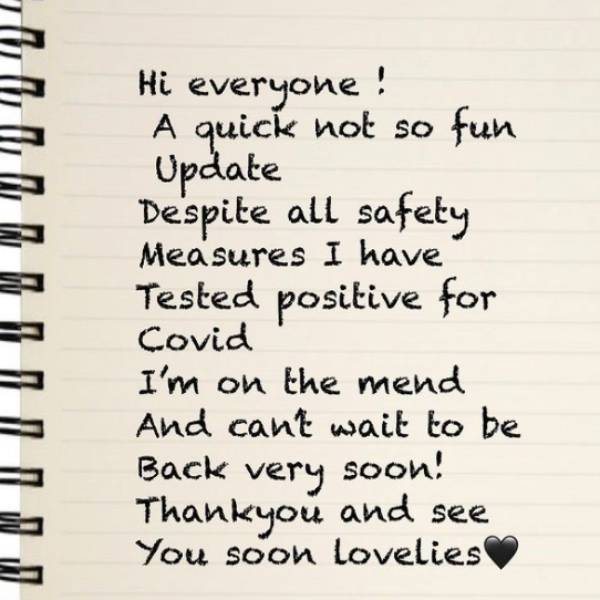 Hi everyone !
A quick not so fun
Update
Despite all safety
Measures I have
Tested positive for
Covid
I'm on the mend
And can't wait to be
Back very soon!
Thankyou and see
You soon lovelies🖤